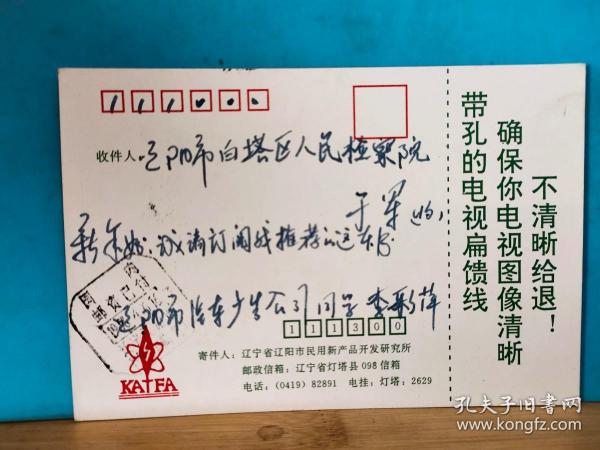 111000
收件人:辽阳市白塔区人民检察院
于军 (收)
新年好,
请订阅我推荐
辽阳市汽车
公司同学 李彩萍
111300
寄件人:辽宁省辽阳市民用新产品开发研究所
邮政信箱:辽宁省灯塔县098信箱
电话:(0419)82891 电挂:灯塔:2629
国内
邮资已付
KATFA
不清晰给退!
确保你电视图像清晰
带孔的电视扁馈线
孔夫子旧书网
www.kongfz.com